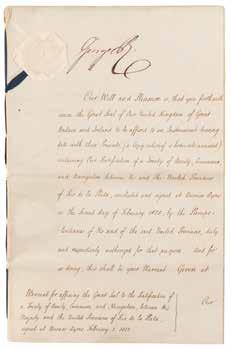 George R.
Our Will and Pleasure is, that you forthwith
cause the Great Seal of Our United Kingdom of Great
Britain and Ireland to be affixed to an Instrument bearing
date with these Presents (a Copy whereof is hereunto annexed)
containing Our Ratification of a Treaty of Amity, Commerce,
and Navigation between Us and the United Provinces
of Rio de la Plata, concluded and signed at Buenos Ayres
on the Second day of February 1825, by the Plenipo-
tentiaries of Us and of the said United Provinces, duly
and respectively authorized for that purpose. And for
so doing, this shall be your Warrant. Given at
Our
Warrant for affixing the Great Seal to the Ratification of
a Treaty of Amity, Commerce, and Navigation, between His
Majesty and the United Provinces of Rio de la Plata,
signed at Buenos Ayres February 2. 1825